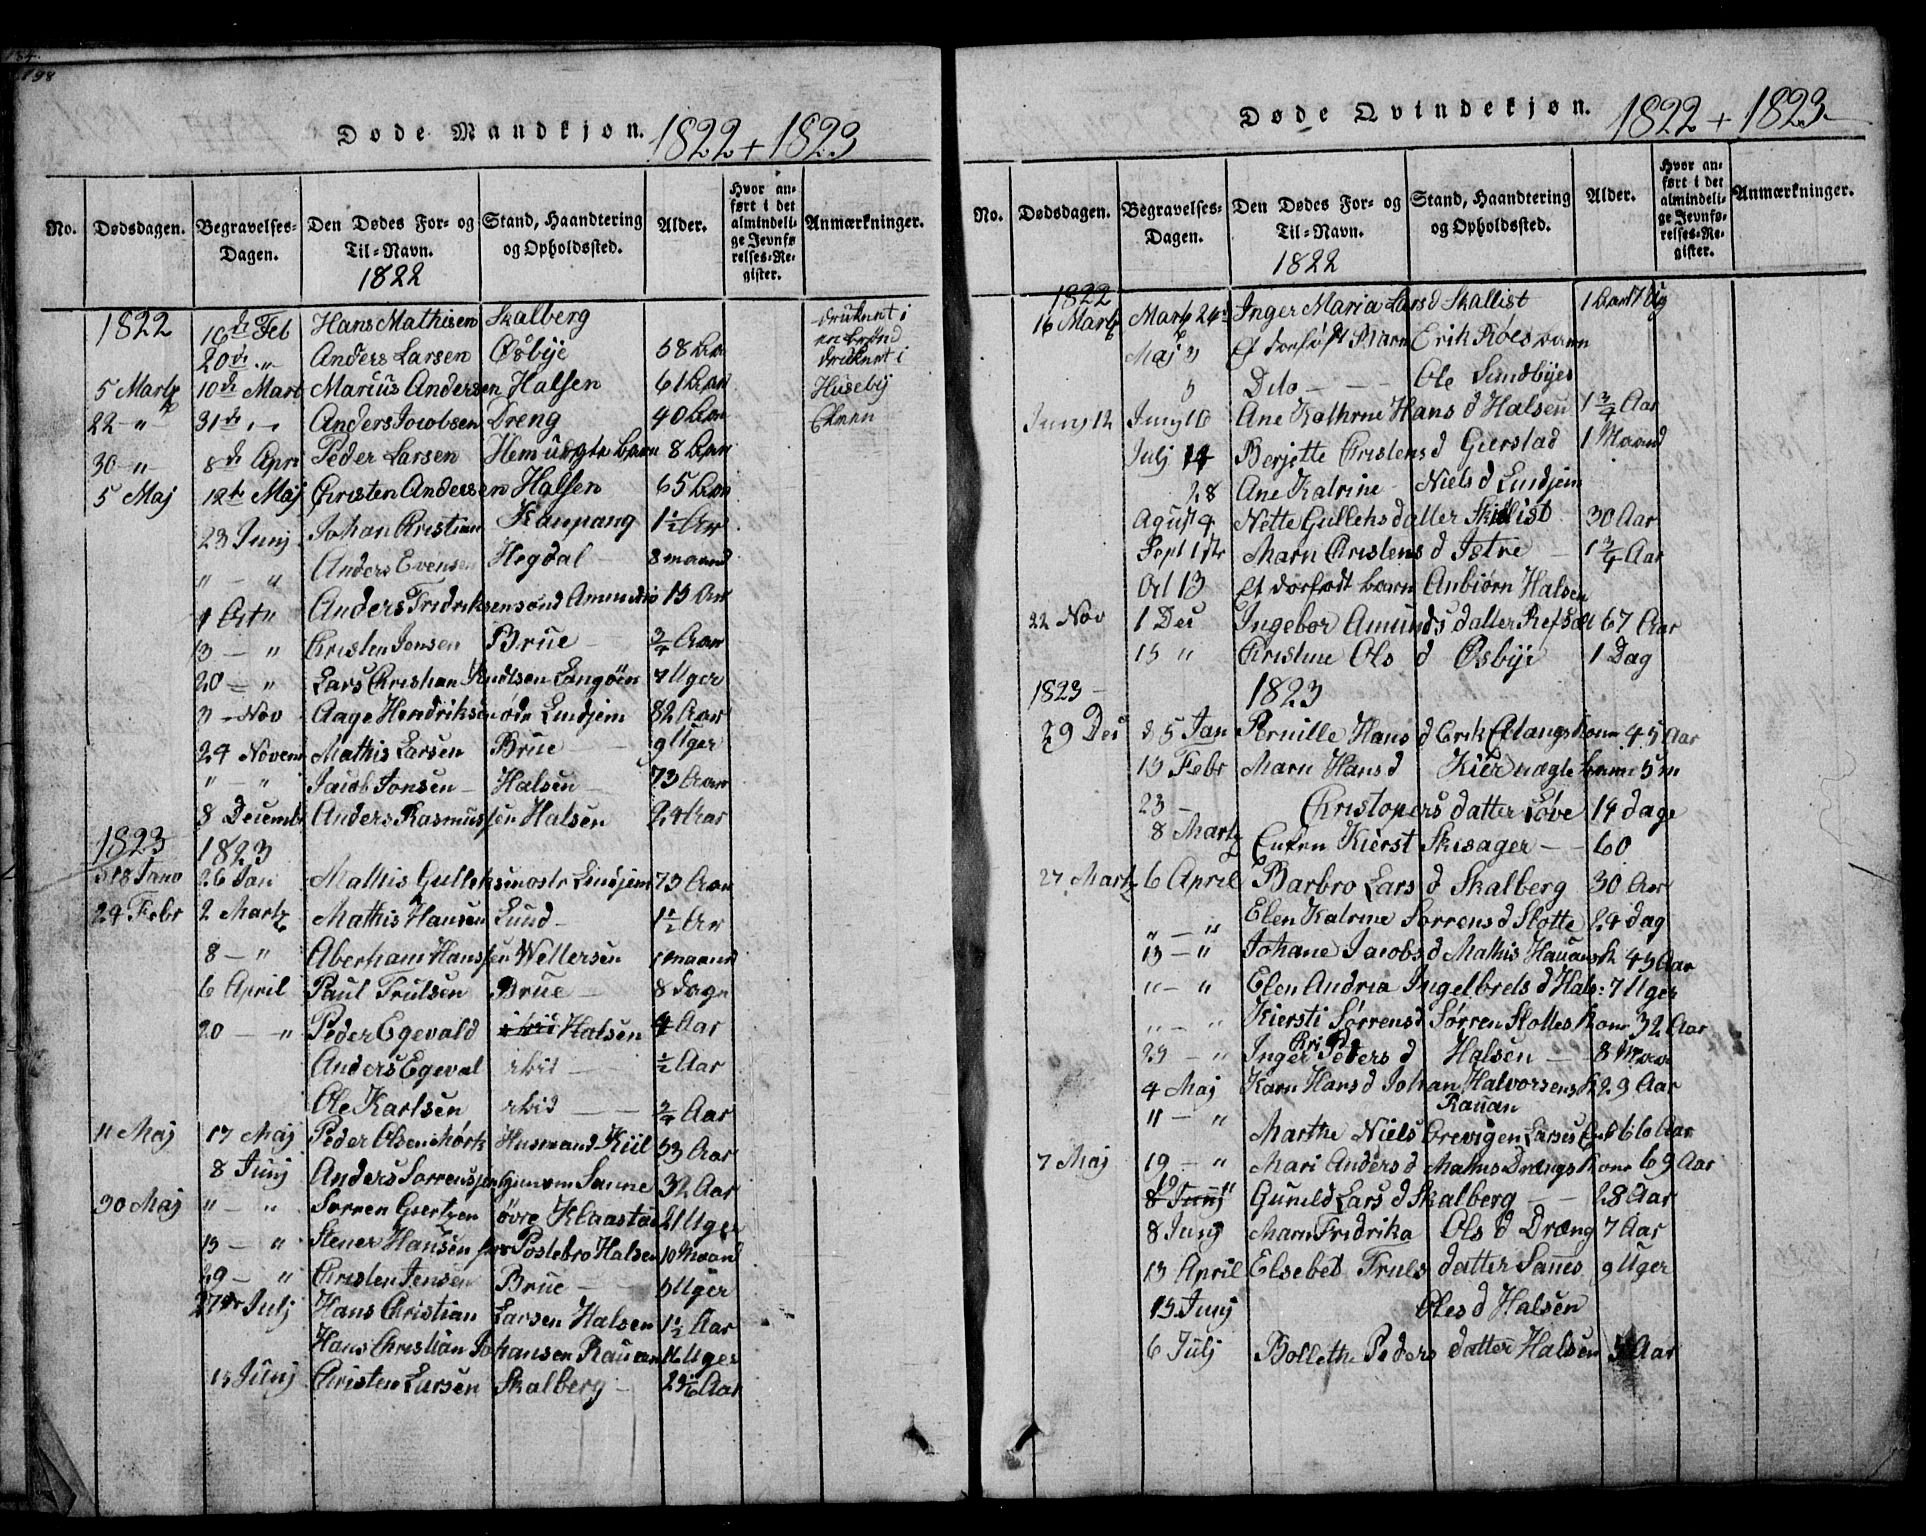 198
Døde Mandkjøn. 1822 + 1823
No. Dødsdagen. Begravelses-Dagen. Den Dødes For- og Til-Navn. Stand, Haandtering og Opholdssted. Alder. Hvor anført i det almindelige Jevnførelses-Register. Anmærkninger.
1822
1822 16de Feb Hans Mathisen Skalberg druknet i
20de " Anders Larsen Øsbye 58 Aar
5 Martz 10de Mart Marius Andersen Halsen 61 Aar Huseby
22 - " 31te Anders Jacobsen Dreng 40 Aar
30 - " 8de Apri Peder Larsen 8 Aar
5 Maj 12te Maj Christen Andersen Halsen 65 Aar
23 Junj Johan Christian Kaupang 1½ Aar
" - " Anders Evensen Hegdal 8 maand
Anders Fridriksen 15 Aar
13 - " Christen Jensen Brue ¾ Aar
20 - " Lars Christian Knutsen Langøen 7 Uger
3 - Nov Aage Hendriksen øde Lindjem 82 Aar
24 Novem Mathis Larsen Brue 9 Uger
" - " Jacob Jonsen Halsen 73 Aar
8 Decemb Anders Rasmussen Halsen 24 Aar
1823 1823
26 Jan Mathis Gulleksen Lindjem 73 Aar
24 Febr 2 Martz Mathis Hansen Lund 1½ Aar
8 - " Aberham Hanssen Wellersen 1 maaned
6 April Paul Trulsen Brue 8 dage
20 - " Peder Egevald Halsen 4 Aar
Anders Egeval ibid ½ Aar
Ole Karlsen ibid ¾ Aar
11 Maj 17 Maj Peder Olsen Mørk Husmand Kiil 53 Aar
8 Junj Anders Sorrensen Sanne 32 Aar
30 Maj " - " Sorren Giertsen øvre Klaastad 2 Uger
15 - " Stener Hansen Postebro Halsen 10 Maand
29 - " Christen Jensen Brue 6 Uger
27de Julj Hans Christian Larsen Halsen 1½ Aar
Hans Christian Johansen Rauan 16 Uger
15 Junj Christen Larsen Skalberg Aar
Døde Qvindekjøn. 1822 + 1823
No. Dødsdagen. Begravelses-Dagen. Den Dødes For- og Til-Navn. Stand, Haandtering og Opholdssted. Alder. Hvor anført i det almindelige Jevnførelses-Register. Anmærkninger.
1822
1822
16 Martz Martz 24 Inger Maria Lars d Skallist
Maj Et dorføft Barn Erik Røes
Dito - - - Ole Sundbyes
Junj 12 Junj 16 Ane Kathrne Hans d Halsen 1¾ Aar
Julj 14 Berjitte Christens d Gierstad 1 Maand
28 Ane Katrine Niels d Lindjem
Agust 4 Nette Gulleks datter Skallist 30 Aar
Sept 1ste Marn Christens d Istre 1¾ Aar
Oct 13 Et dorfødt barn Anbiørn Halsen
22 Nov 1 Des Ingebor Amunds datter Refsal 67 Aar
15 " Christine Ols d Øsbye 1 Dag
1823 1823
29 Des d 5 Jan Pernille Hans d Erik kone 45 Aar
15 Febr Marn Hans d 5 m
23 - Christopers datter Løve 14 dage
8 Martz Kierst Skisager - - 60
27 Martz 6 April Barbro Lars d Skalberg 30 Aar
" - " Elen Katrine Sorrens d Slotte 24 dag
13 - " Johane Jacobs d Mathis Hauans K 45 Aar
" - " Elen Andria Ingelbrets d Hals: 7 Uger
" - " Kiersti Sørrensd Sørren Slottes Kone 32 Aar
25 - " Inger Peders d Halsen
4 Maj Karn Hans d Johan Halvorsens K 29 Aar
Rauan
11 - " Marthe Niels 66 Aar
7 Maj 19 - " Mari Anders d Mathis Drængs Kone 69 Aar
8 Junj Guneld Lars d Skalberg - - 28 Aar
8 Junj Marn Fridrika Ols d Dræng 7 Aar
13 April Elsebet Truls datter Sanes 9 Uger
15 Junj Oles d Halsen
6 Julj Bollethe Peders datter Halsen Aar